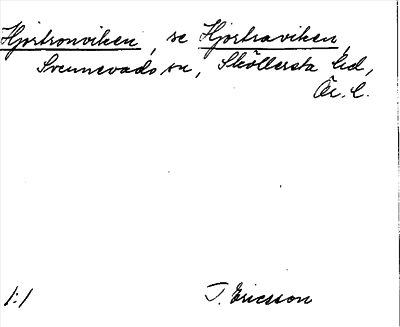 Hjortronviken, se Hjortraviken,
Svennevads sn, Sköllersta hd,
Ör. l.
1:1
J. Ericsson